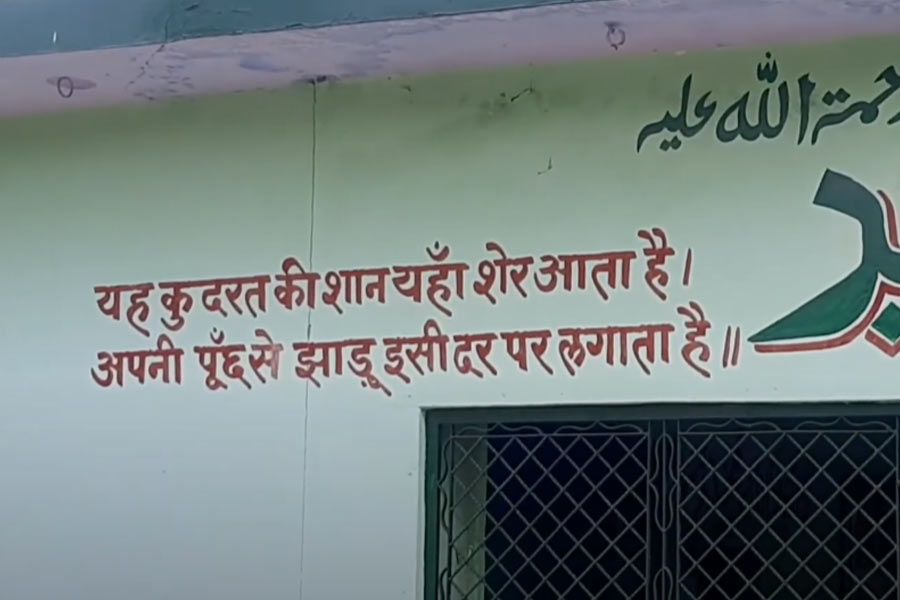 رحمتہ اللہ علیہ
यह कुदरत की शान यहाँ शेर आता है।
अपनी पूँछ से झाड़ू इसी दर पर लगाता है॥